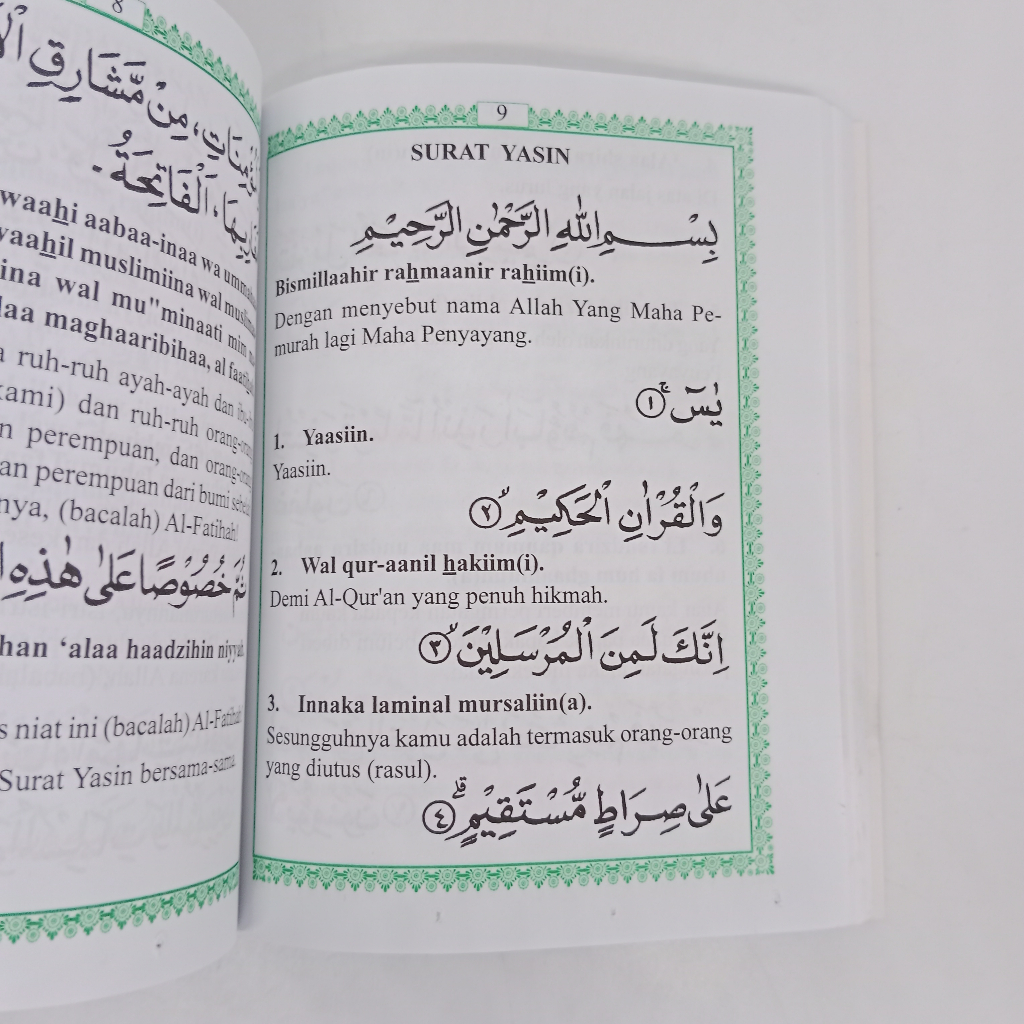 8
مِنْ مَّشَارِقِ
اَلْفَاتِحَةُ.
waahi aabaa-inaa wa
yaahil muslimiina wal
ina wal mu"minaati
laa maghaaribihaa, al
ruh-ruh ayah-ayah dan
kami) dan ruh-ruh
perempuan, dan
perempuan dari bumi
nya, (bacalah) Al-Fatihah!
خُصُوْصًا عَلٰى هٰذِهِ
han ‘alaa haadzihin
niat ini (bacalah)
Surat Yasin bersama-sama
9
SURAT YASIN
بِسْمِ اللهِ الرَّحْمٰنِ الرَّحِيْمِ
Bismillaahir rahmaanir rahiim(i).
Dengan menyebut nama Allah Yang Maha Pe-
murah lagi Maha Penyayang.
يٰسٓ ۚ ١
1. Yaasiin.
Yaasiin.
وَالْقُرْاٰنِ الْحَكِيْمِۙ ٢
2. Wal qur-aanil hakiim(i).
Demi Al-Qur'an yang penuh hikmah.
اِنَّكَ لَمِنَ الْمُرْسَلِيْنَۙ ٣
3. Innaka laminal mursaliin(a).
Sesungguhnya kamu adalah termasuk orang-orang
yang diutus (rasul).
عَلٰى صِرَاطٍ مُّسْتَقِيْمٍۗ ٤